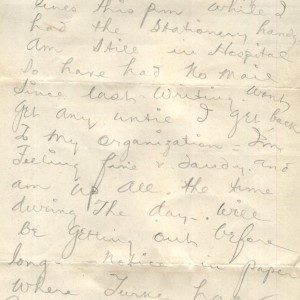 lines this pm while I
had the Stationery handy
Am Still in Hospital
So have had No Mail
Since last writing. Wont
get any until I get back
to my organization - I'm
Feeling fine & dandy. and
am up all the time
during The day. Will
Be getting out before
long. Notice in paper
Where Turkey has